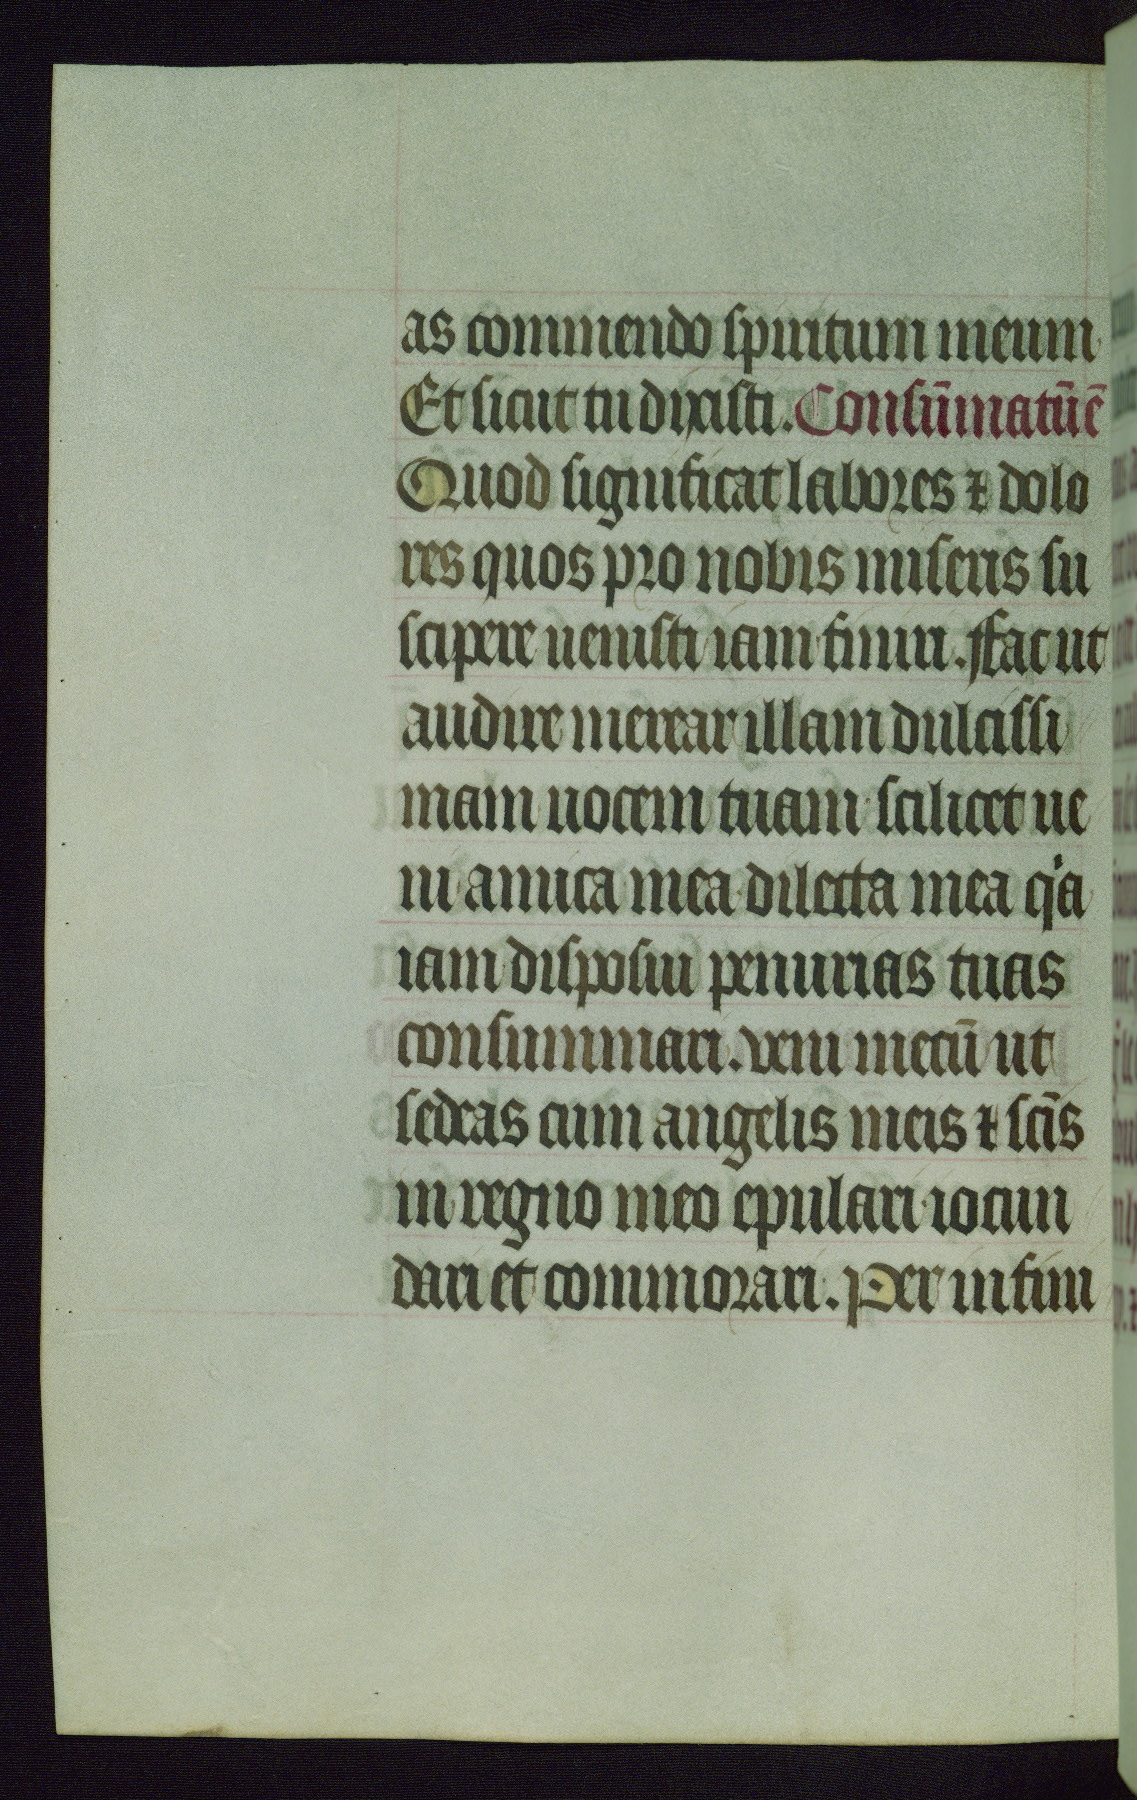 as commendo spiritum meum
Et sicut tu dixisti. Consūmatūē
Quod significat labores ⁊ dolo
res quos pro nobis miseris su
scipere uenisti iam finiri. ffac ut
audire merear illam dulcissi
mam uocem tuam scilicet ue
ni amica mea dilecta mea qͥa
iam disposui penurias tuas
consummari. veni mecū ut
sedeas cum angelis meis ⁊ scīs
in regno meo epulari iocun
dari et commorari. Per infini